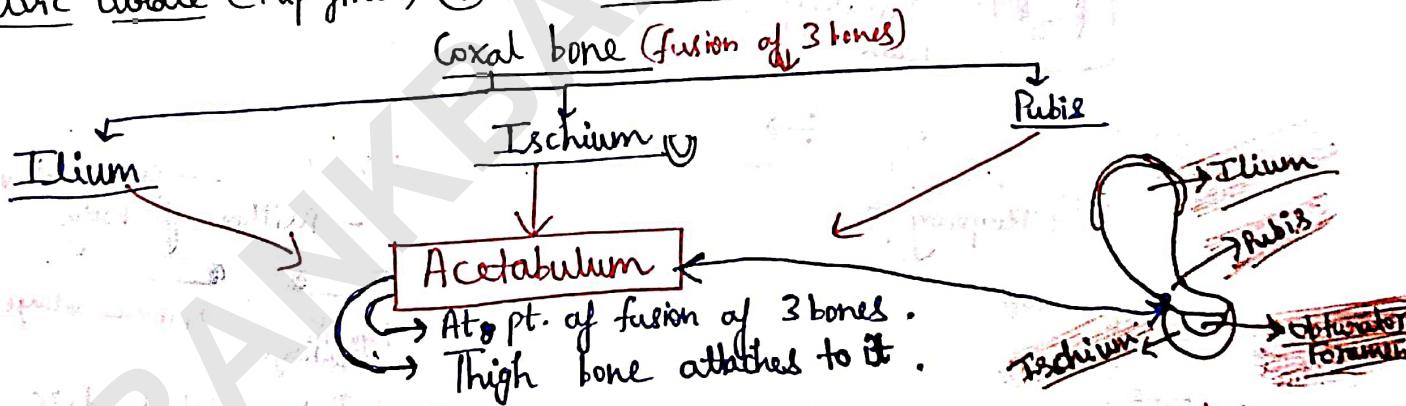 Coxal bone (fusion of 3 bones)
Ilium
Ischium
Pubis
Acetabulum
At pt. of fusion of 3 bones.
Thigh bone attathes to it.
Ilium
Pubis
Ischium
Obturator
RANKBA